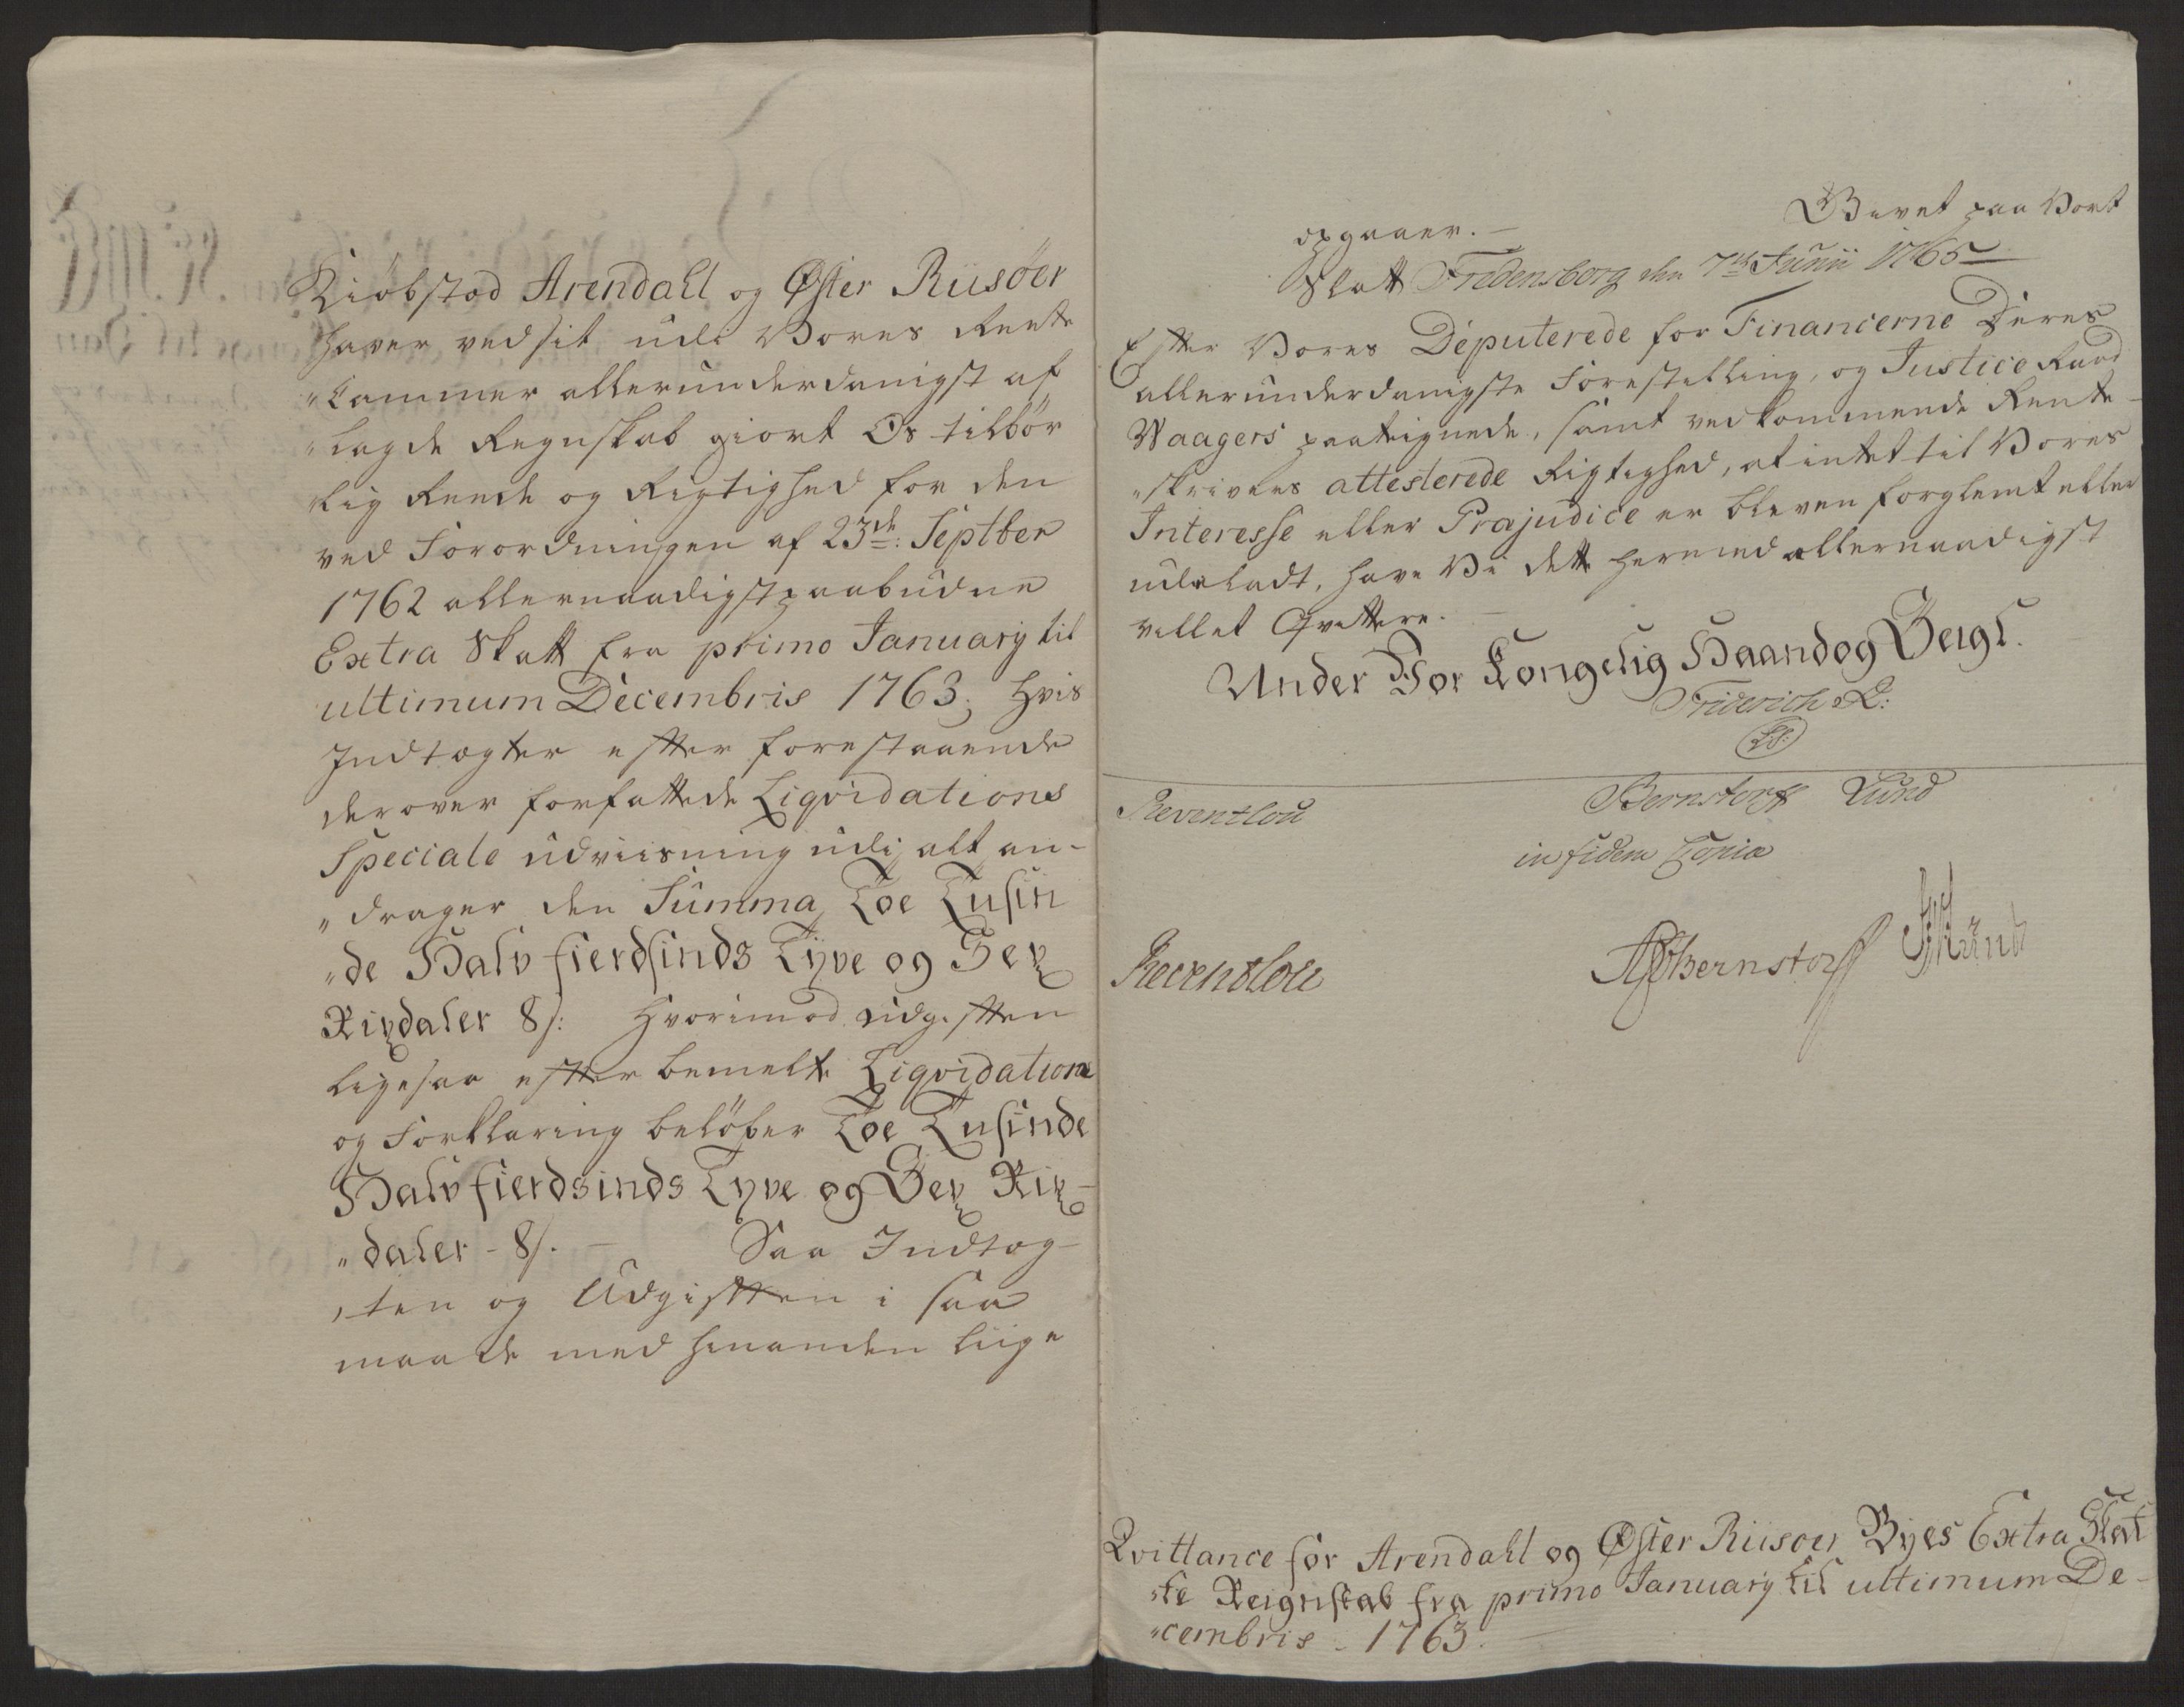 Kiøbstæd Arendahl og Øster Riisøer
haver ved sit udi Vores Rente
"Cammer allerunderdanigst af
"lagde Regnskab giort Os tilbør
lig Reede og Rigtighed for den
ved Forordningen af 23de: Septber
1762 allernaadigst paabudne
Extra Skatt fra primo January til
ultimum Decembris 1763; hvis
Indtægter efter forestaaende
derover forfattede Liqvidations
Speciale udviisning udi alt an-
"drager den Summa Toe Tusin
"de Halv fierdsinds Tyve og Sex
Rixdaler 8/: Hvorimod udgiften
ligesaa efter bemelte Liqvidation
og Forklaring beløber Toe Tusinde
Halv fierdsinds Tyve og Sex Rix-
"daler - 8/. - Saa Indtæg-
"ten og Udgiften i saa
maade med hinanden liige
opgaaer. - Givet paa Vort
Slott Fredensborg den 7de Junii 1765 -
Efter Vores Deputerede for Financerne Deres
allerunderdanigste Forestilling, og Justice Raad
Waagers paategnede, samt vedkommende Rente-
"skrivers attesterede Rigtighed, at intet til Vores
Interesse eller Præjudice er bleven forglemt eller
udeladt, have Vi dette hermed allernaadigst
villet Qvittere. -
Under Vor Kongelig Haand og Seigl.
Friderich R:
LS:
Reventlou Bernstorff Lund
in fidem Copiæ
Reventlou Bernstorff Lund
Qvittance for Arendahl og Øster Riisøer Byes Extra Skat
"te Reignskab fra primo January til ultimum De-
"cembris - 1763.